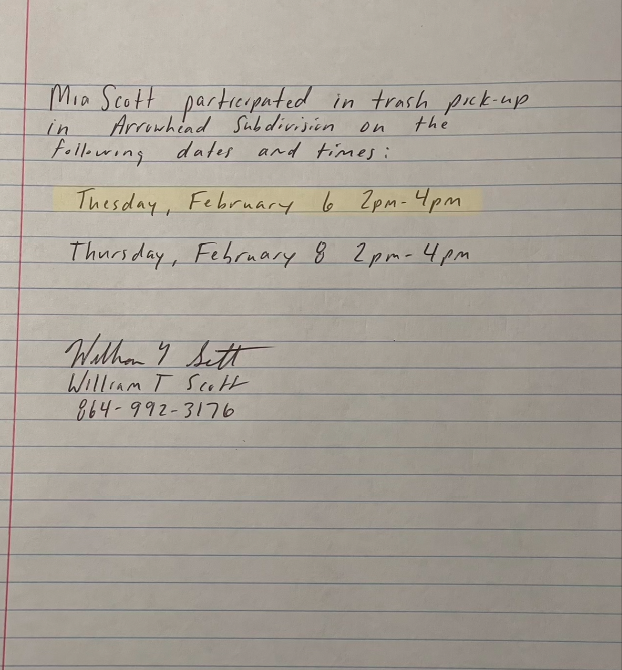 Mia Scott participated in trash pick-up
in Arrowhead Subdivision on the
following dates and times:
Tuesday, February 6 2pm-4pm
Thursday, February 8 2pm-4pm
William T Scott
William T Scott
864-992-3176